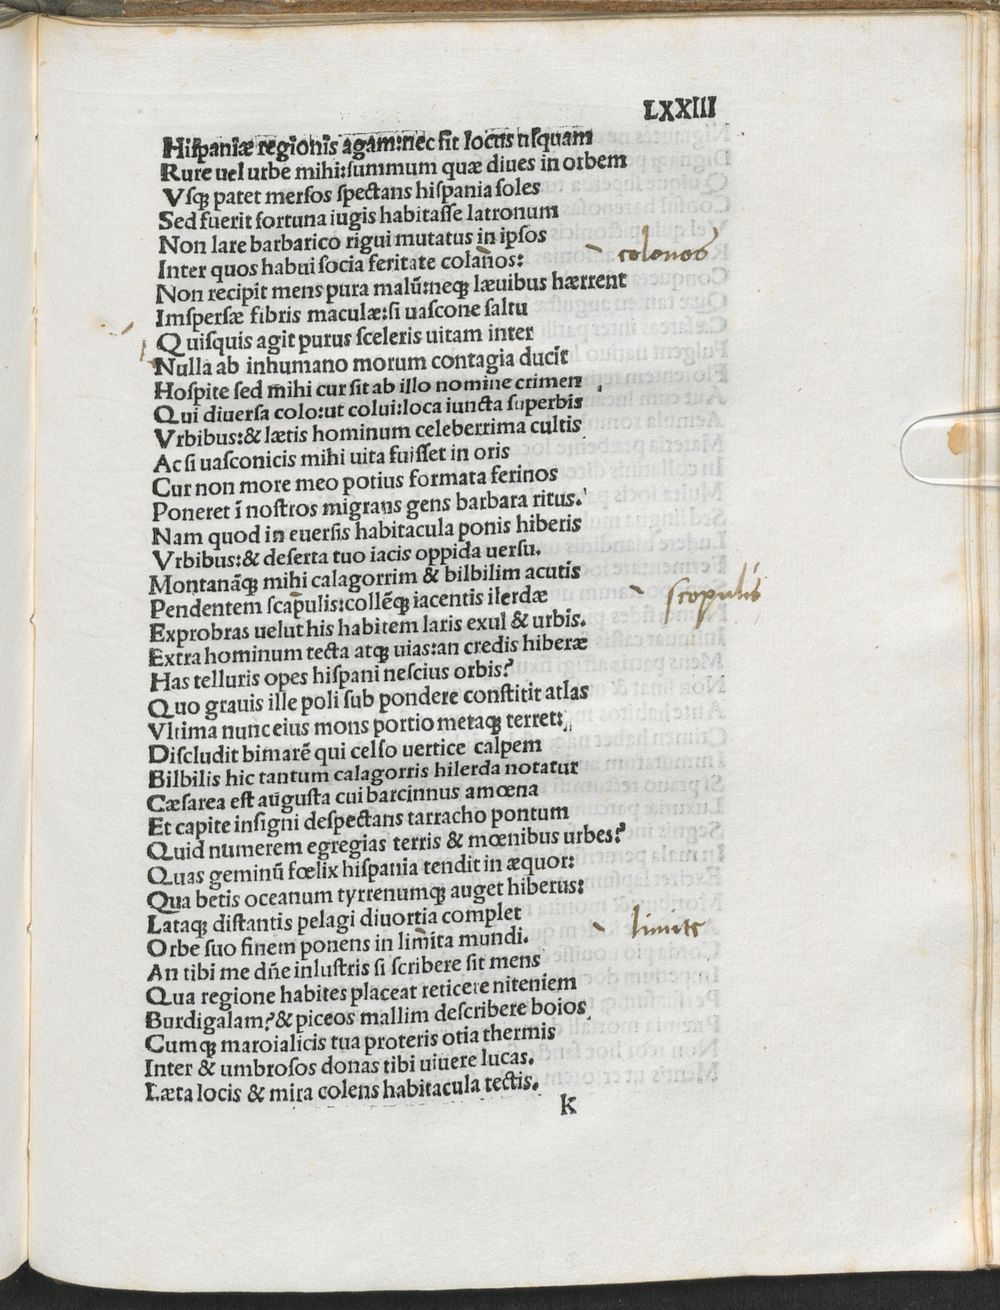 LXXIII
Hiſpaniæ regionis agam:nec ſit locus uſquam
Rure uel urbe mihi:ſummum quæ diues in orbem
Vſqꝫ patet merſos ſpectans hiſpania ſoles
Sed fuerit fortuna iugis habitaſſe latronum
Non lare barbarico rigui mutatus in ipſos
Inter quos habui ſocia feritate colanos: colonos
Non recipit mens pura malū:neqꝫ læuibus hærrent
Imſperſæ fibris maculæ:ſi uaſcone ſaltu
Quiſquis agit purus ſceleris uitam inter
Nulla ab inhumano morum contagia ducit
Hoſpite ſed mihi cur ſit ab illo nomine crimen
Qui diuerſa colo:ut colui:loca iuncta ſuperbis
Vrbibus:& lætis hominum celeberrima cultis
Ac ſi uaſconicis mihi uita fuiſſet in oris
Cur non more meo potius formata ferinos
Poneret ī noſtros migrans gens barbara ritus.
Nam quod in euerſis habitacula ponis hiberis
Vrbibus:& deſerta tuo iacis oppida uerſu.
Montanāqꝫ mihi calagorrim & bilbilim acutis
Pendentem ſcapulis:collēqꝫ iacentis ilerdæ scopulis
Exprobras uelut his habitem laris exul & urbis.
Extra hominum tecta atqꝫ uias:an credis hiberæ
Has telluris opes hiſpani neſcius orbis?
Quo grauis ille poli ſub pondere conſtitit atlas
Vltima nunc eius mons portio metaqꝫ terret:
Diſcludit bimarē qui celſo uertice calpem
Bilbilis hic tantum calagorris hilerda notatur
Cæſarea eſt auguſta cui barcinnus amœna
Et capite inſigni deſpectans tarracho pontum
Quid numerem egregias terris & mœnibus urbes?
Quas geminū fœlix hiſpania tendit in æquor:
Qua betis oceanum tyrrenumqꝫ auget hiberus:
Lataqꝫ diſtantis pelagi diuortia complet
Orbe ſuo finem ponens in limita mundi. limite
An tibi me dn̄e inluſtris ſi ſcribere ſit mens
Qua regione habites placeat reticere niteniem
Burdigalam?& piceos mallim deſcribere boios
Cumqꝫ maroialicis tua proteris otia thermis
Inter & umbroſos donas tibi uiuere lucas.
Læta locis & mira colens habitacula tectis.
k